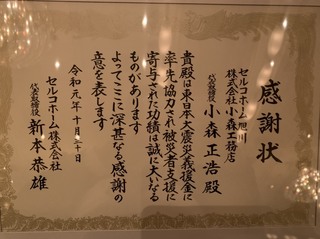 感謝状
セルコホーム旭川
株式会社小森工務店
代表取締役 小森正浩殿
貴殿は東日本大震災義援金に
率先協力され被災者支援に
寄与された功績は誠に大いなる
ものがあります
よってここに深甚なる感謝の
意を表します
令和元年十月三十日
セルコホーム株式会社
代表取締役 新本恭雄